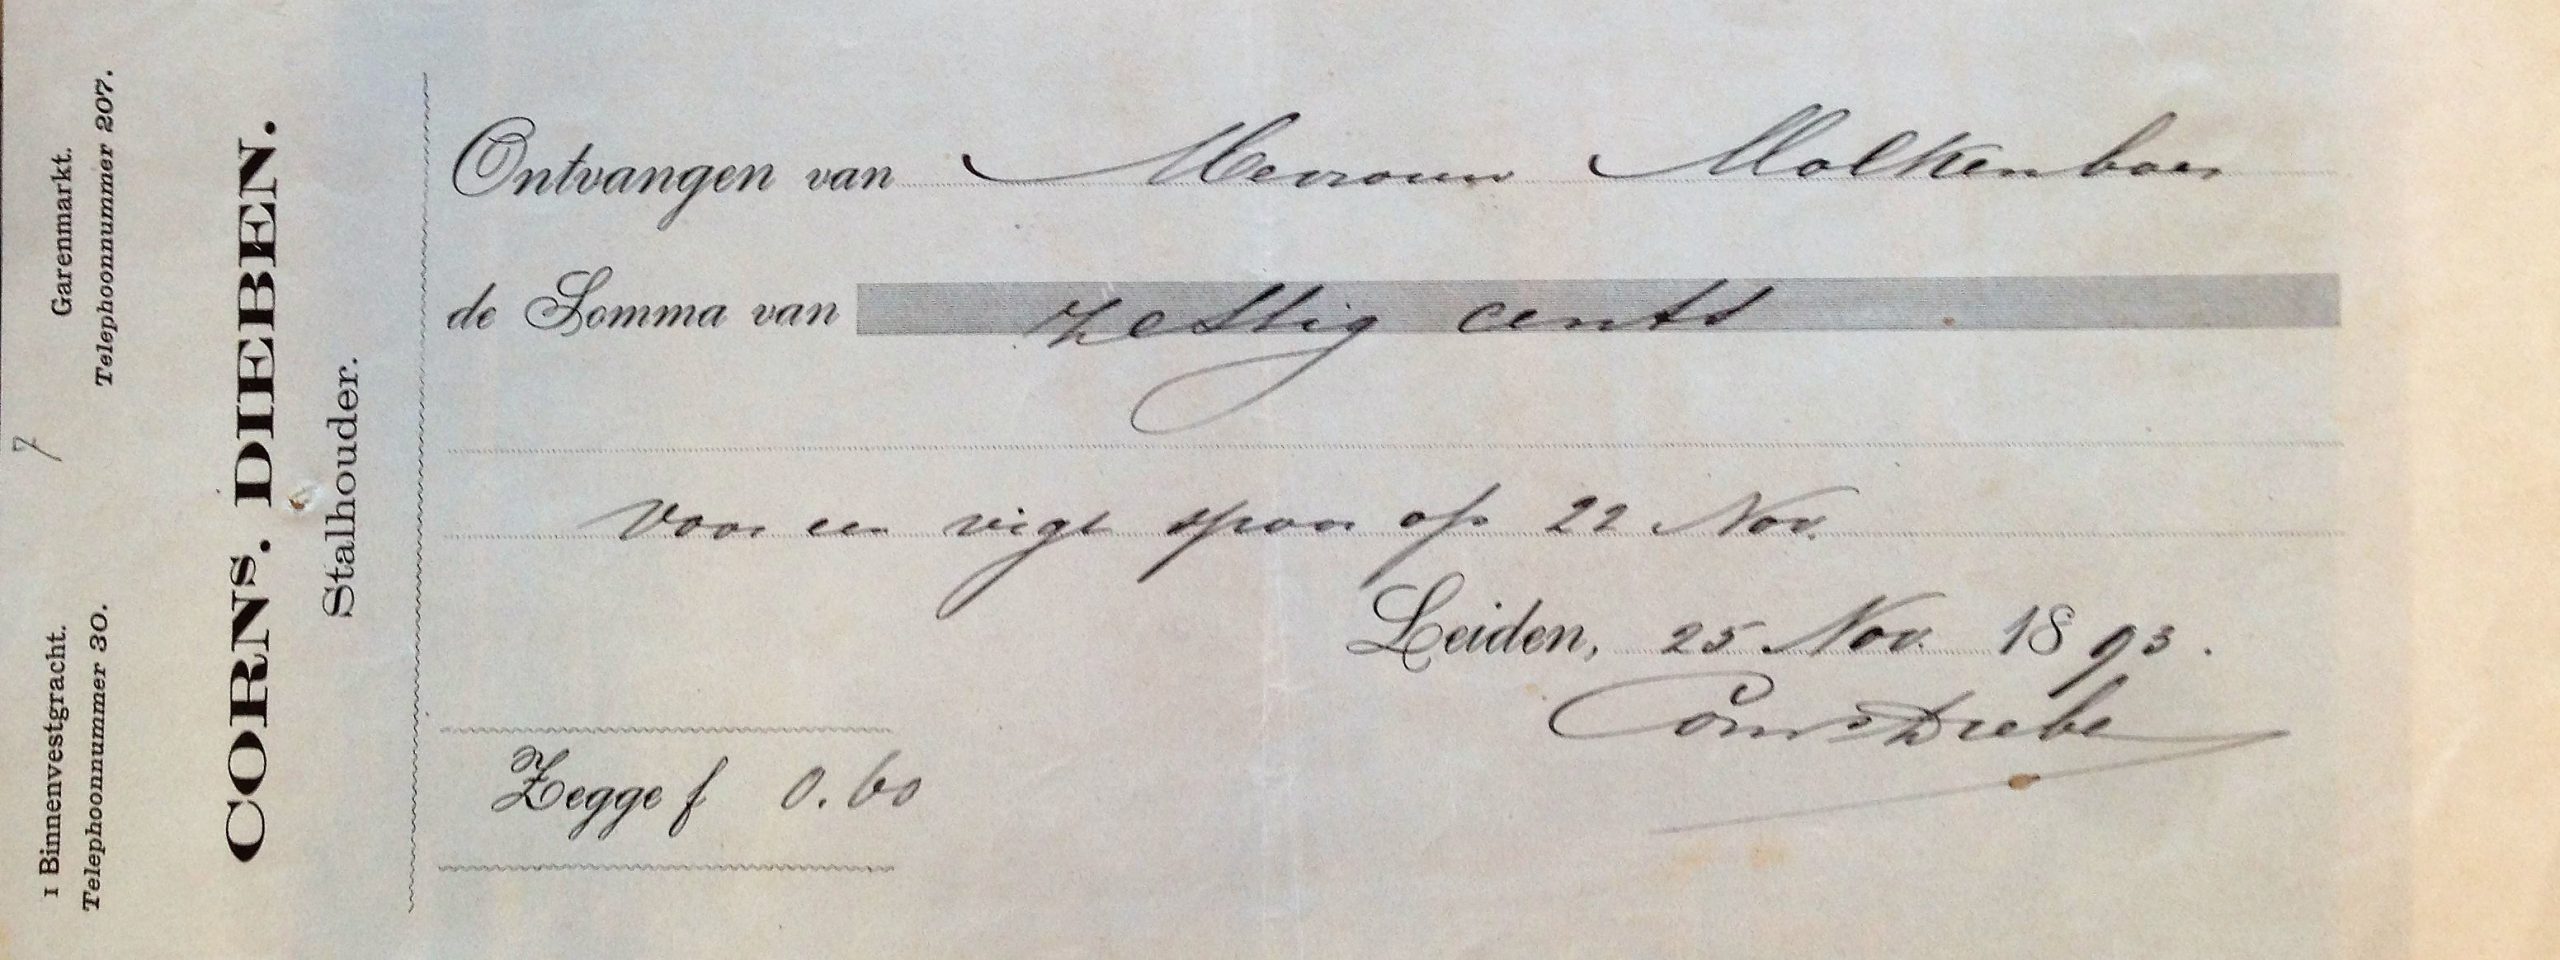 1 Binnenvestgracht.
Telephoonnummer 30.
Garenmarkt.
Telephoonnummer 207.
7
CORNS. DIEBEN.
Stalhouder.
Ontvangen van Mevrouw Molkenboer
de Somma van zestig cents
voor een vigt spoor op 22 Nov.
Leiden, 25 Nov. 1893.
Corns Dieben
Zegge f 0.60